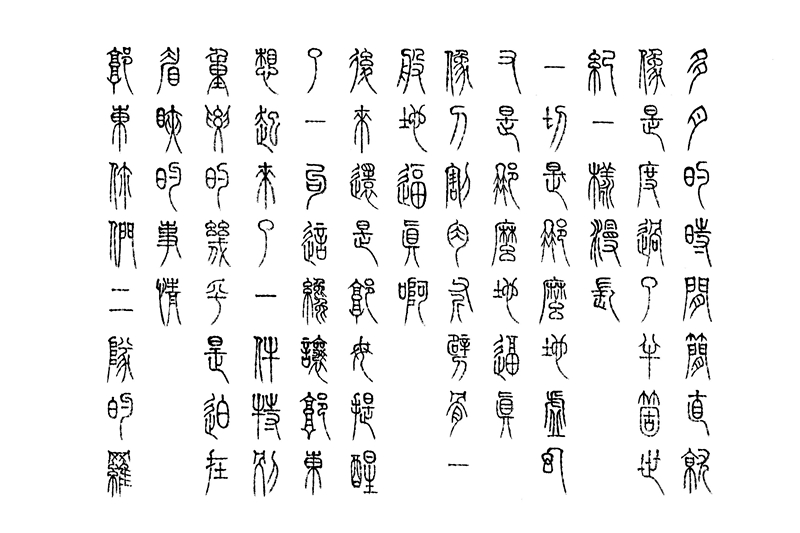 多月的時間簡直就
像是度過了半箇世
紀一樣漫長
一切是那麼地虛幻
又是那麼地逼真
像刀割肉斧劈骨一
般地逼真啊
後來還是郭母提醒
了一句這纔讓郭東
想起來了一件特別
重要的幾乎是迫在
眉睫的事情
郭東你們二隊的羅